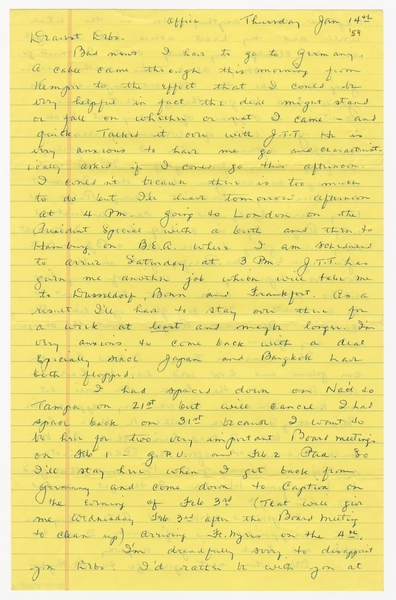 Office Thursday Jan 14th
'59
Dearest Debs.
Bad news. I have to go to Germany.
A cable came through this morning from
to the effect that I could be
very helpful in fact the deal might stand
or fall on whether or not I came – and
quick. Talked it over with J.T.T. He is
very anxious to have me go and characterist-
ically asked if I could go this afternoon.
I couldn't because there is too much
to do but I'll leave tomorrow afternoon
at 4 P.M. going to London on the
President Special with a berth and then to
Hamburg on B.E.A. where I am scheduled
to arrive Saturday at 3 PM. J.T.T. has
given me another job which will take me
to Dusseldorf, Bonn and Frankfort. As a
result I'll have to stay over there for
a week at least and maybe longer. I'm
very anxious to come back with a deal
especially since Japan and Bangkok have
both flopped.
I had space down on Nat'l to
Tampa on 21st but will cancel. I had
space back on 31st because I want to
be here for two very important Board meetings
on Feb 1 – G.P.U. and Feb 2 Paa. So
I'll stay here when I get back from
Germany and come down to Captiva on
the evening of Feb 3rd (That will give
me Wednesday Feb 3rd after the Board Meeting
to clean up) arriving Ft. Myers on the 4th.
I'm dreadfully sorry to disappoint
you Debs. I'd rather be with you at